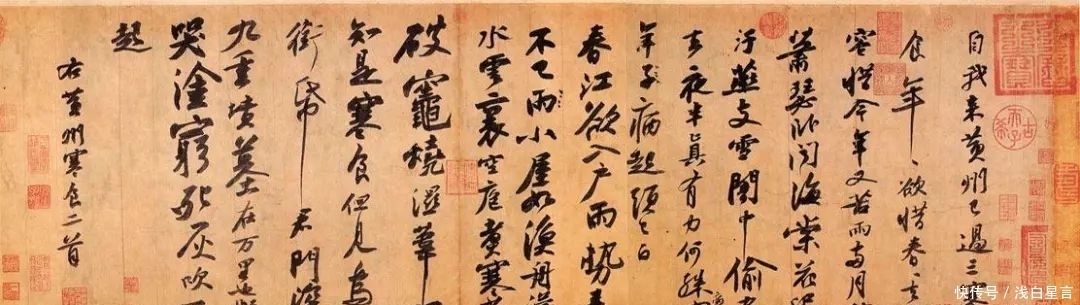 自我来黄州已過三
食年〻欲惜春〻
容惜今年又苦雨兩月
蕭瑟卧聞海棠花
汙燕支雪闇中偷
去夜半真有力何殊
年子病起頭已白
春江欲入户雨勢
不已雨小屋如漁舟
水雲裏空庖煮寒
破竈燒濕葦
知是寒食但見烏
銜帋君門深
九重墳墓在万里也擬
哭塗窮死灰吹
起
右黄州寒食二首
快传号 / 浅白星言